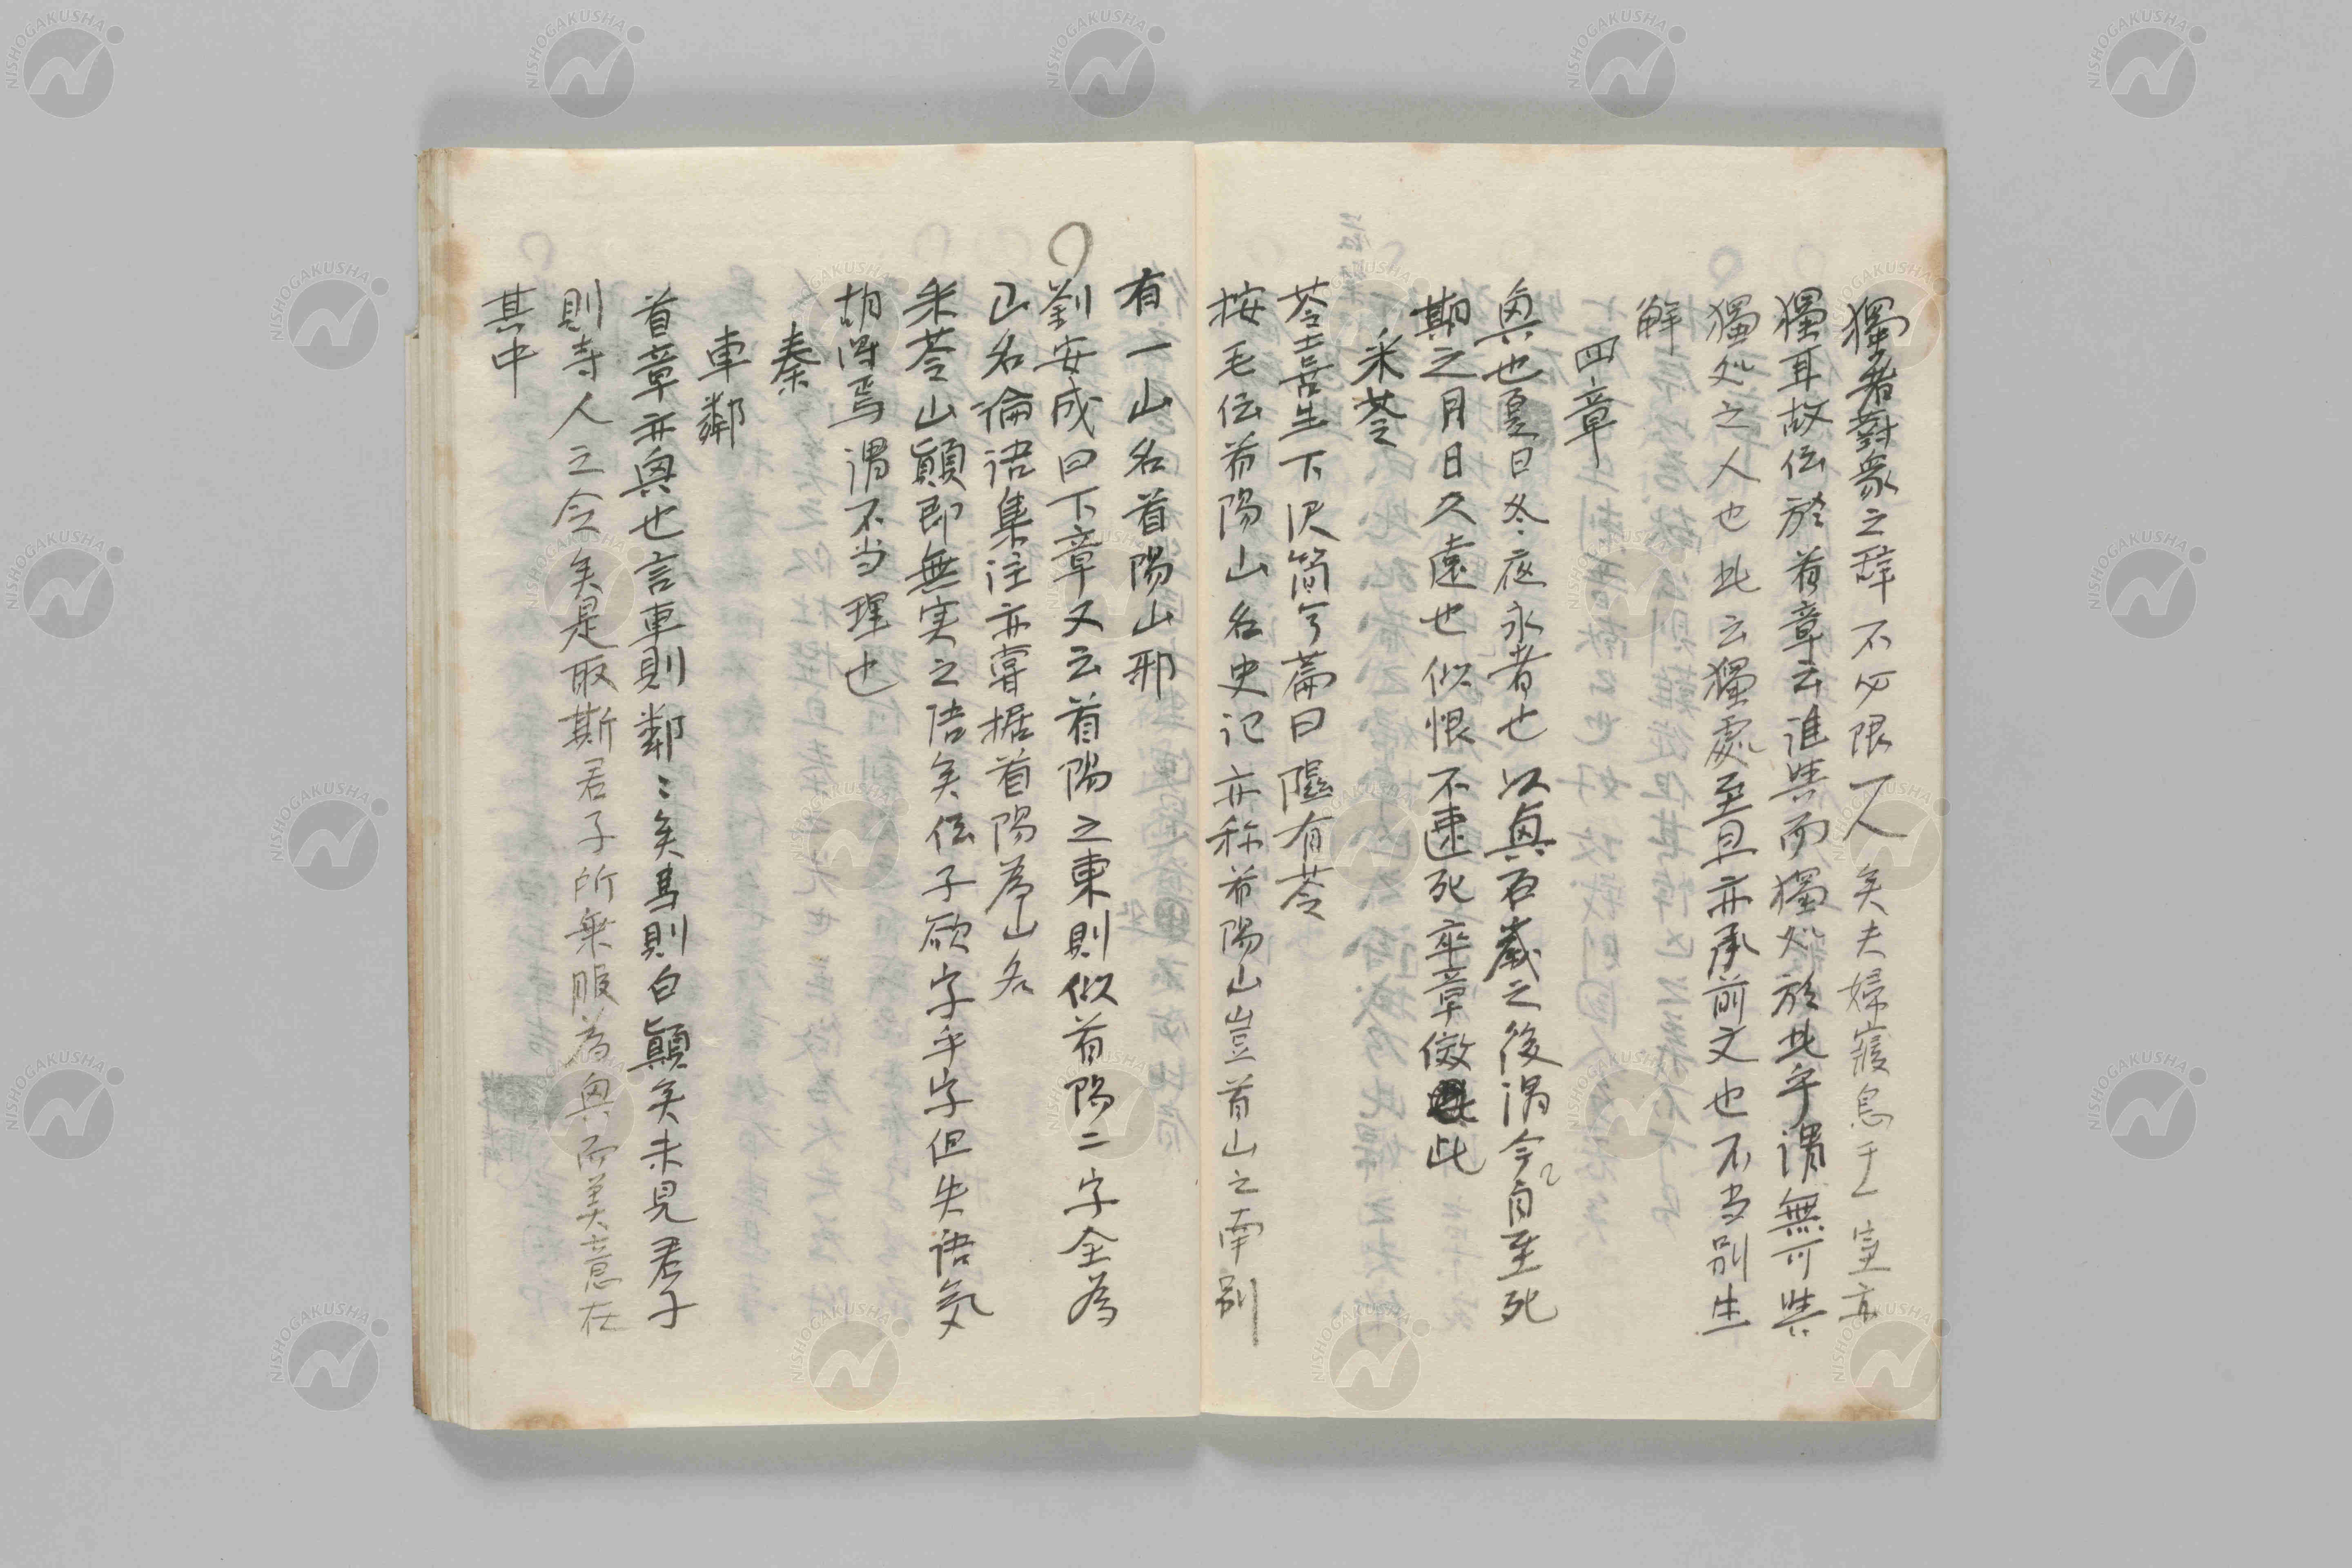 獨者對衆之辞不必限一人矣夫婦寢息于一室亦
獨耳故伝於首章云誰與而獨処於此乎謂無可與
獨処之人也此云獨處至旦亦承前文也不当別生
解
四章
興也夏日冬夜永者也以興百歲之後謂今自至死
期之月日久遠也似恨不速死卒章倣此
采苓
苓喜生下沢簡兮篇曰隰有苓
按毛伝首陽山名史記亦称首陽山豈首山之南別
有一山名首陽山邪
劉安成曰下章又云首陽之東則似首陽二字全為
山名論語集注亦嘗据首陽為山名
采苓山顛即無実之喑矣伝子欲字乎字但失語気
胡得焉謂不当理也
秦
車鄰
首章亦興也言車則鄰〻矣馬則白顛矣未見君子
則寺人之令矣是取斯君子所乗服為興而美意在
其中
NISHOGAKUSHA